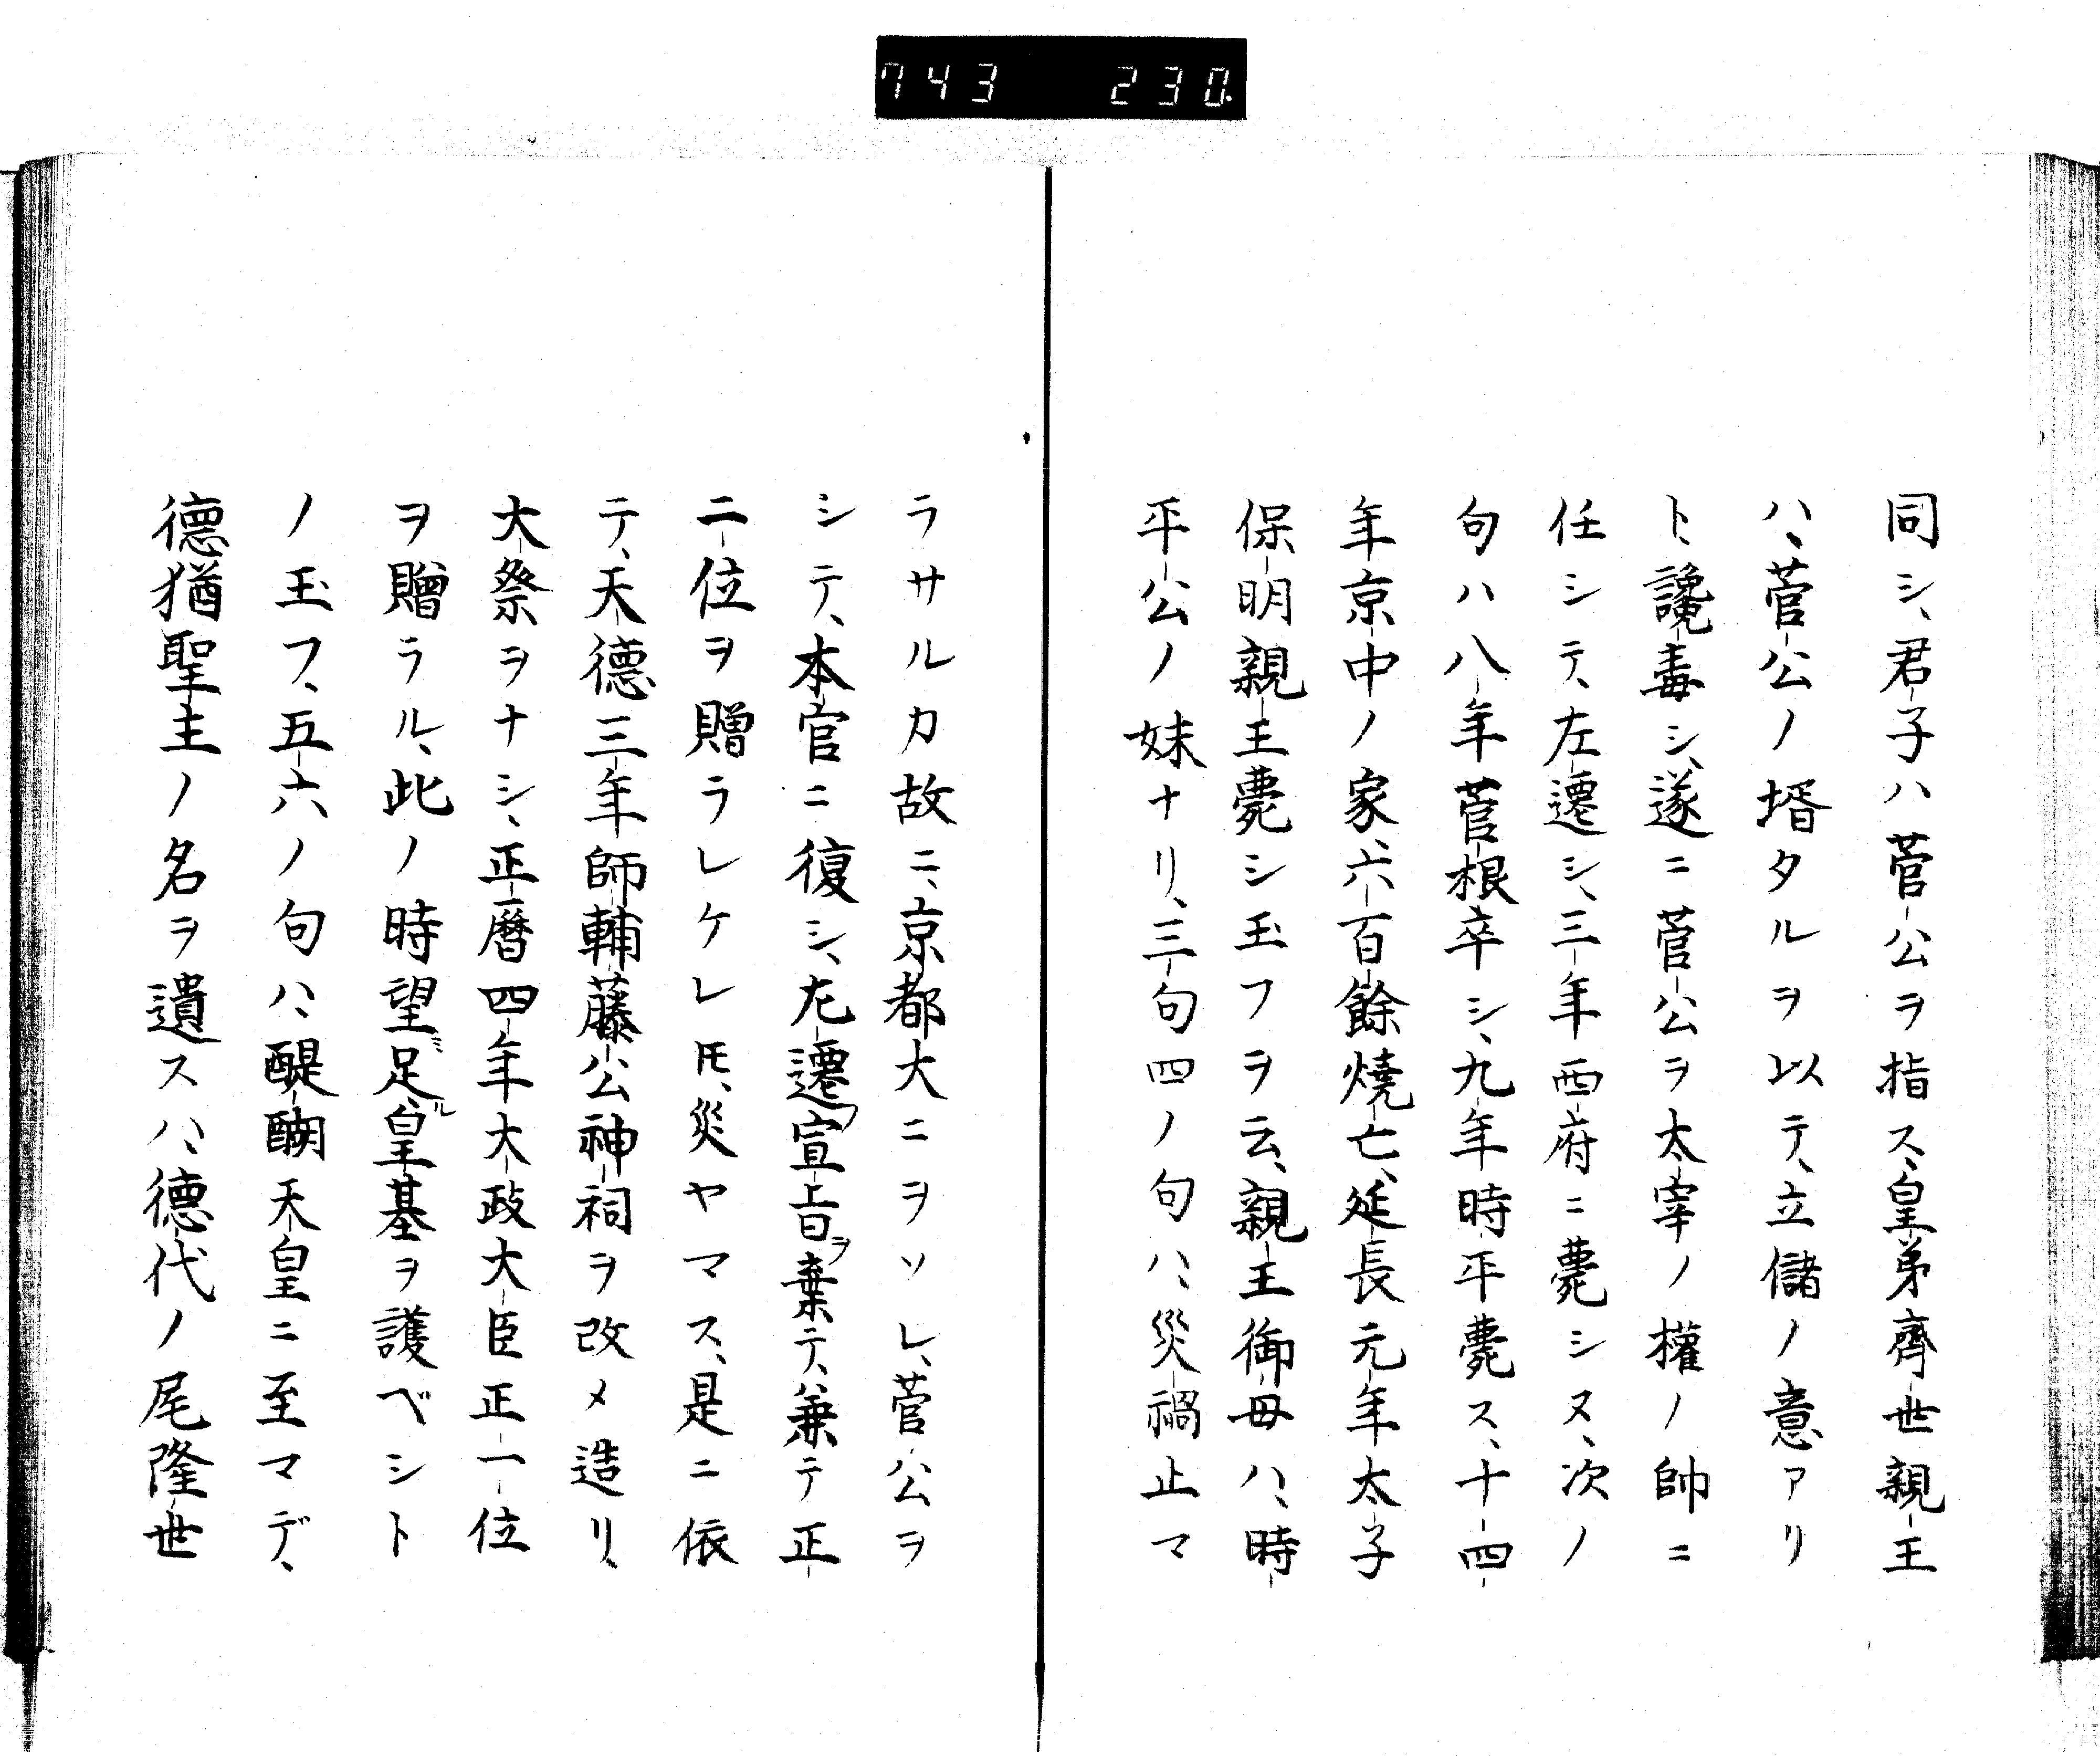 743 230
同シ、君子ハ菅公ヲ指ス、皇弟齊世親王
ハ、菅公ノ壻タルヲ以テ、立儲ノ意アリ
ト、讒毒シ、遂ニ菅公ヲ太宰ノ權ノ帥ニ
任シテ、左遷シ、三年西府ニ薨シヌ、次ノ
句ハ八年菅根卒シ、九年時平薨ス、十四
年京中ノ家六百餘燒亡、延長元年太子
保明親王薨シ玉フヲ云、親王御母ハ、時
平公ノ妹ナリ、三句四ノ句ハ、災禍止マ
ラサルカ故ニ、京都大ニヲソレ、菅公ヲ
シテ、本官ニ復シ、左遷ノ宣旨ヲ棄テ、兼テ正
二位ヲ贈ラレケレ𪜈、災ヤマス、是ニ依
テ、天德三年師輔藤公神祠ヲ改メ造リ、
大祭ヲナシ、正曆四年大政大臣正一位
ヲ贈ラル、此ノ時望足ミル皇基ヲ護ベシト
ノ玉フ、五六ノ句ハ、醍醐天皇ニ至マデ、
德猶聖主ノ名ヲ遺スハ、德代ノ尾隆世